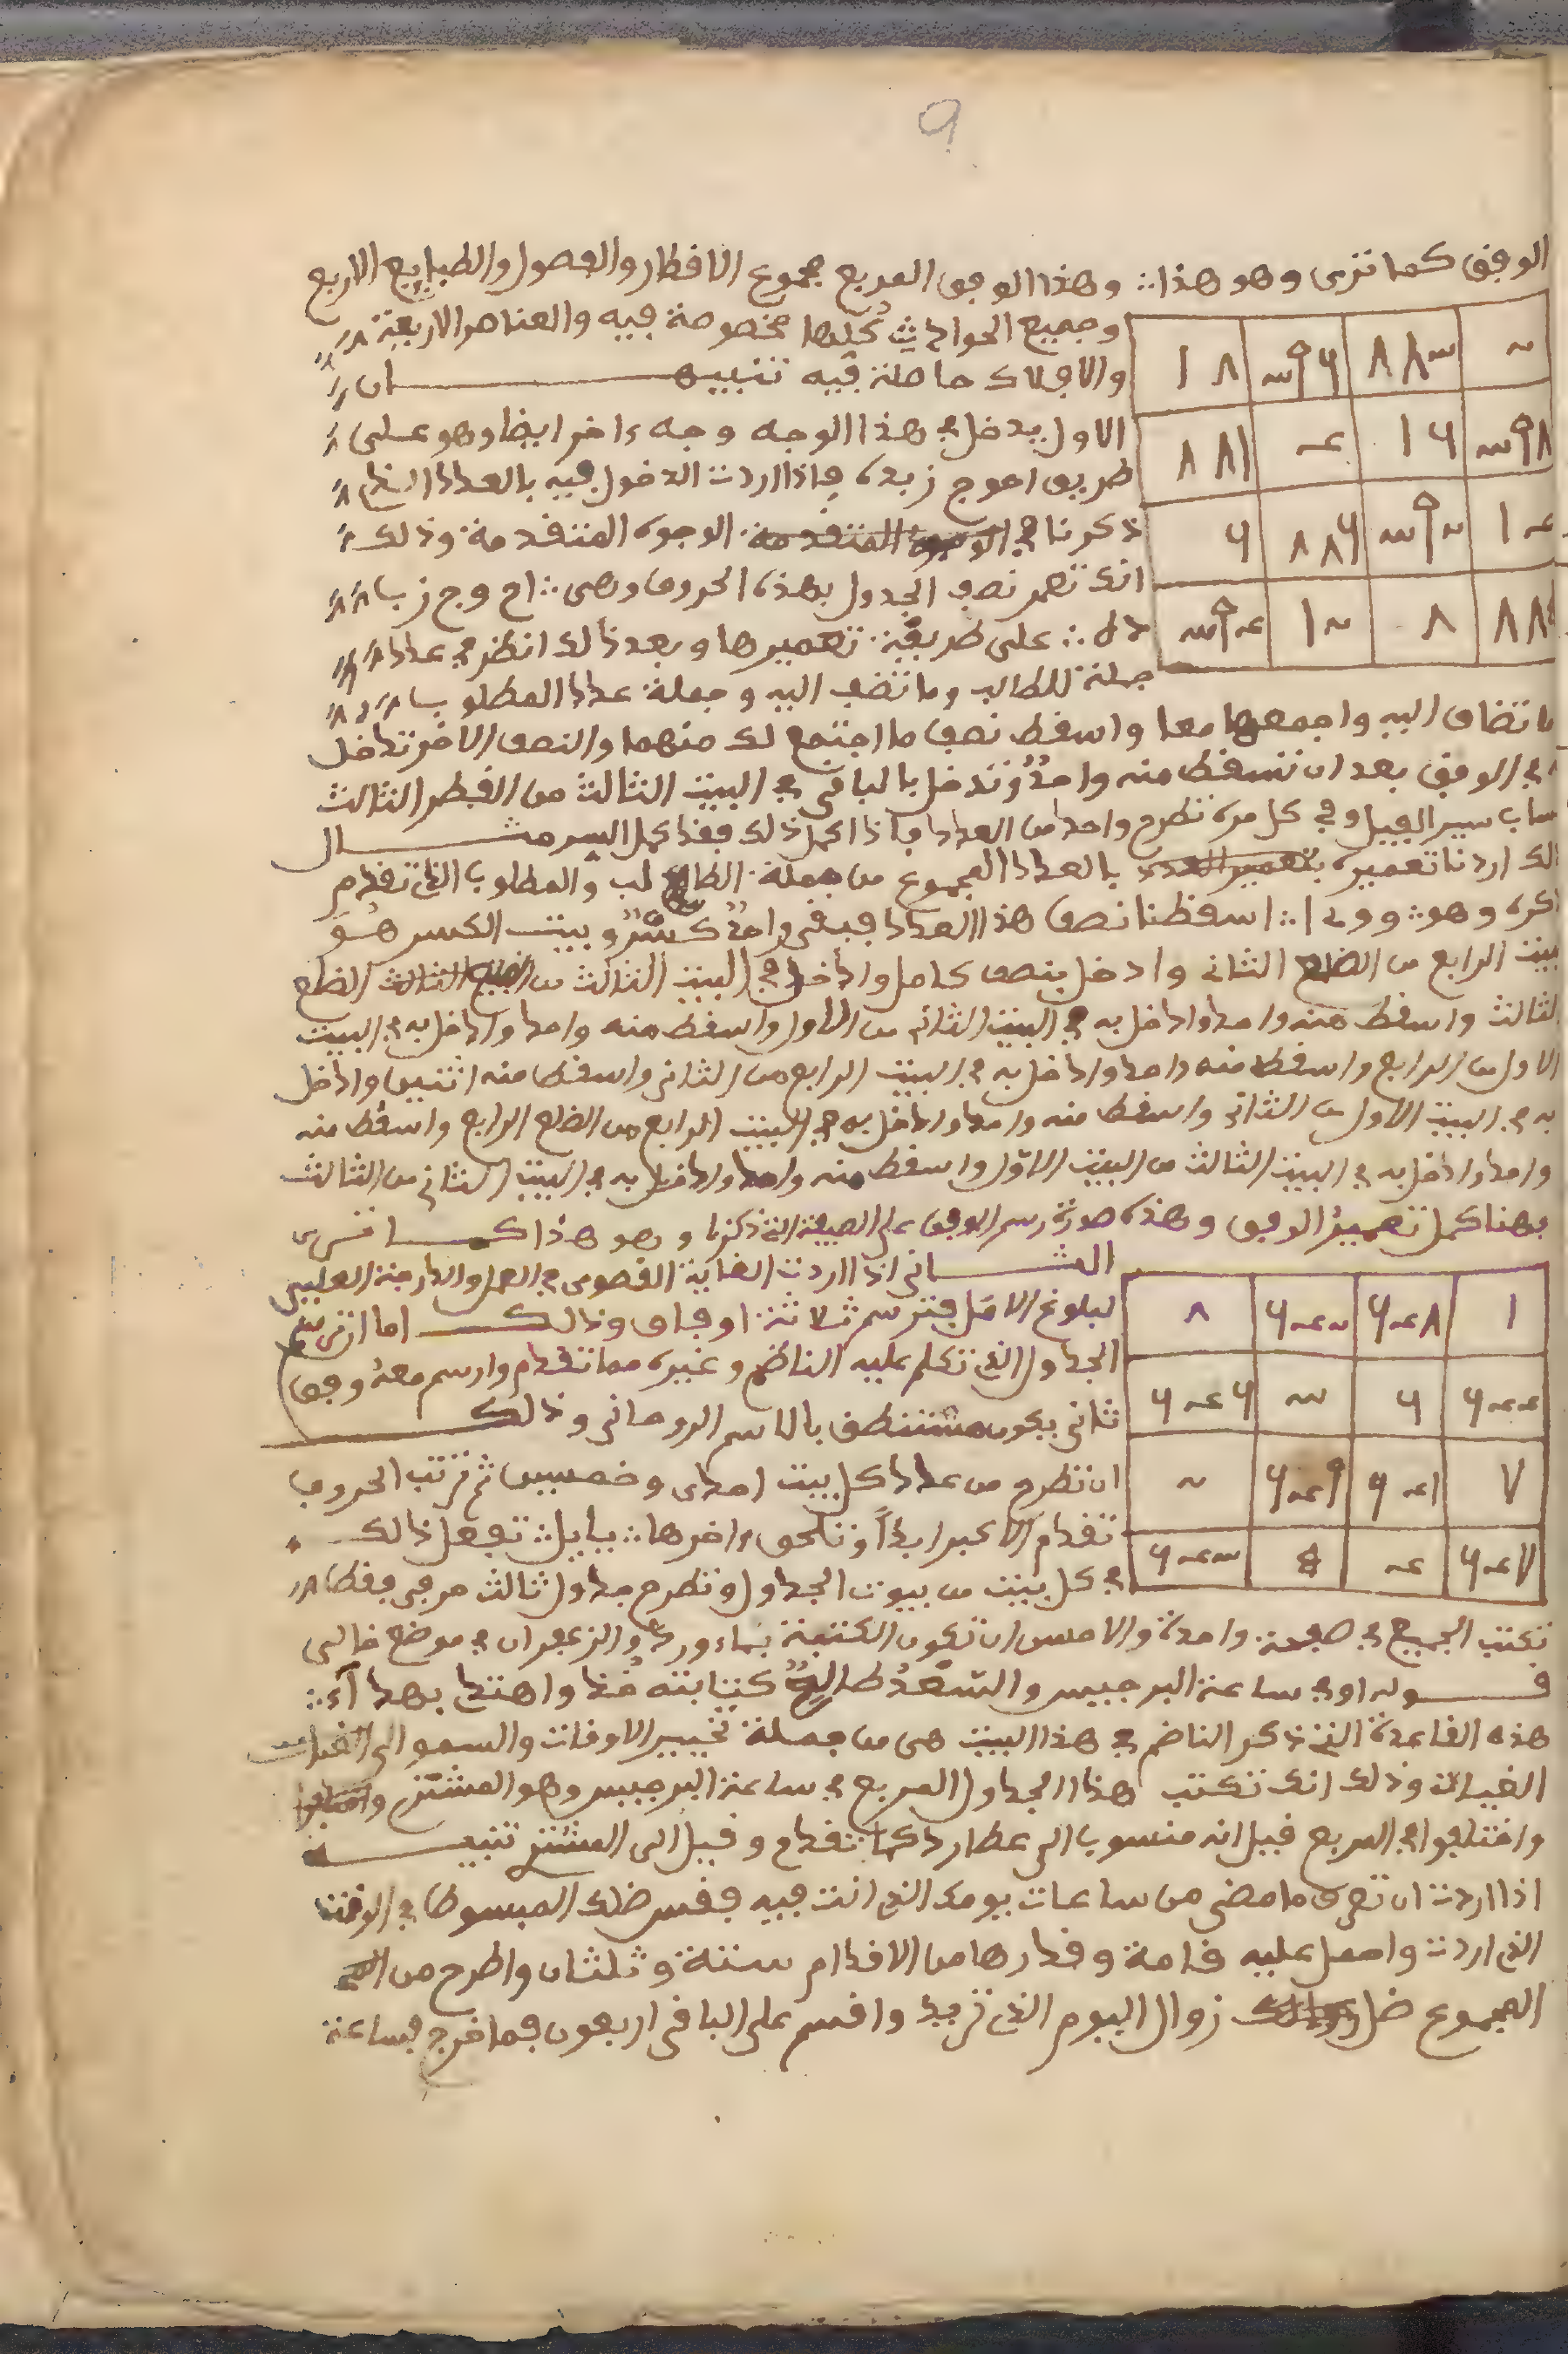 9
الوفق كما ترى وهو هذا :: وهذا الوفق المربع مجموع الاقطار والفصول والطبايع الاربع
وجميع الحوادث كلها مخصوصة فيه والعناصر الاربعة
والافلاك حاصلة فيه تنبيهان
الاول يدخل في هذا الوجه وجه ءاخر ايضا وهو على
طريق احوج زبده فاذا اردت الدخول فيه بالعدد الذي
ذكرنا في الوجوه المتقدمة وذلك
انك تعمر نصف الجدول بهذه الحروف وهي :: اح وج زب
ده :: على طريقة تعميرها وبعد ذلك انظر في عدد
جملة للطالب وما تضف اليه وجملة عدد المطلوب
ما تضاف اليه واجمعها معا واسقط نصف ما اجتمع لك منهما والنصف الاخر تدخل
في الوفق بعد ان تسقط منه واحدٌ وتدخل بالباقي في البيت الثالث من القطر الثالث
حساب سير الفيل وفي كل مرة تطرح واحد من العدد فاذا كمل ذلك فقد كمل السر مثال
ذلك اردنا تعميره بالعدد المجموع من جملة الطالب والمطلوب الذي تقدم
ذكره وهو :: اسقطنا نصف هذا العدد فبقي واحدٌ كسرٌ وبيت الكسر هو
بيت الرابع من الضلع الثاني وادخل بنصف كامل وادخل في البيت الثالث من الضلع
الثالث واسقط منه واحد وادخل به في البيت الثاني من الاول واسقط منه واحد وادخل به في البيت
الاول من الرابع واسقط منه واحد وادخل به في البيت الرابع من الثاني واسقط منه اثنين وادخل
به في البيت الاول من الثاني واسقط منه واحد وادخل به في البيت الرابع من الضلع الرابع واسقط منه
واحد وادخل به في البيت الثالث من البيت الاول واسقط منه واحد وادخل به في البيت الثاني من الثالث
بهنا كمل تعمير الوفق وهذه صورة رسم الوفق على الصيغة التي ذكرنا وهو هذا كما ترى
الثاني اذا اردت الغاية القصوى في العمل والدارجة العليى
لبلوغ الامل فترسم ثلاثة اوفاق وذلك اما ان ترسم
الجدول الذي تكلم عليه الناظم وغيره مما تقدم وارسم معه وفق
ثاني يكون مستنطق بالاسم الروحاني وذلك
ان تطرح من عدد كل بيت احدى وخمسين ثم ترتب الحروف
تقدم الاكبر ابدأ وتلحق ءاخرها :: بايل :: تفعل ذلك
في كل بيت من بيوت الجدول وتطرح جدول ثالث حرفي فقط
تكتب الجميع في صفحة واحدة والاحسن ان تكون الكتبة بماء ورد والزعفران في موضع خالى
قوله او في ساعة البرجيس والسعدُ طالعٌ كتابته خذا واهتد بهداءً ::
هذه القاعدة التي ذكر الناضم في هذا البيت هي من جملة تخيير الاوقات والسمو الى
وذلك انك تكتب هذا الجدول المربع في ساعة البرجيس وهو المشتري
واختلفوا في المربع فيل انه منسوب الى عطارد كما تقدم وفيل الى المشتري تنبيه
اذا اردت ان تعرف ما مضى من ساعات يومك الذي انت فيه ففس ضلك المبسوط في الوقت
الذي اردت واحمل عليه قامة وقدرها من الاقدام ستة وثلثان واطرح من
المجموع ضل زوال اليوم الذي تريد واقسم على الباقي اربعون فما خرج فساعة